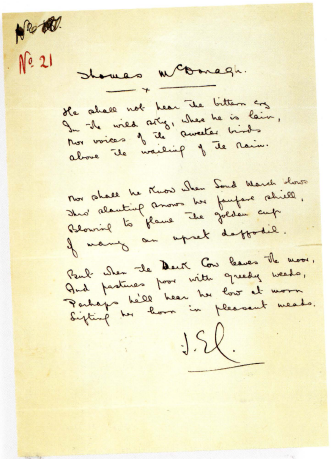 No. 21
Thomas McDonagh.
x
He shall not hear the bittern cry
In the wild sky, where he is lain,
Nor voices of the sweeter birds
above the wailing of the rain.
Nor shall he know when loud March blows
Thro' slanting snows her fanfare shrill,
Blowing to flame the golden cup
Of many an upset daffodil.
But when the Dark Cow leaves the moor,
And pastures poor with greedy weeds,
Perhaps he'll hear her low at morn
Lifting her horn in pleasant meads.